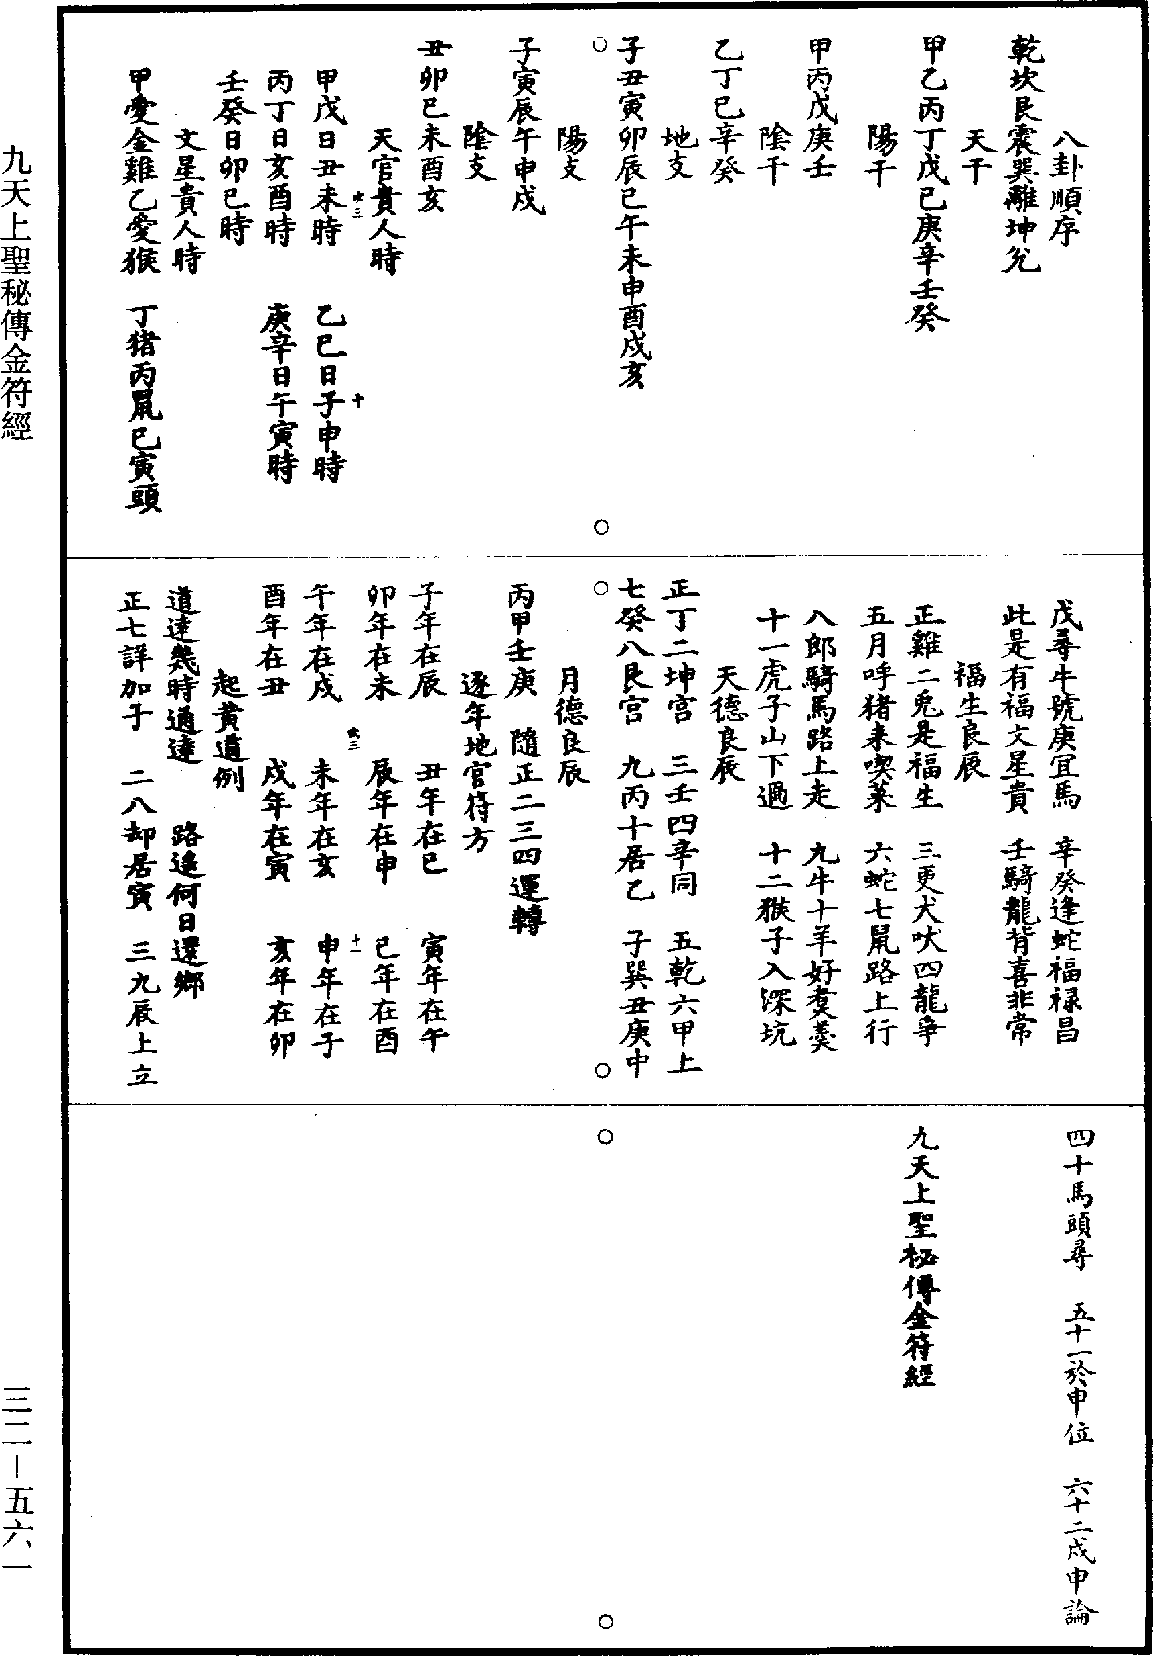 八卦順序
乾坎艮震巽離坤兌
天干
甲乙丙丁戊己庚辛壬癸
陽干
甲丙戊庚壬
陰干
乙丁己辛癸
地支
子丑寅卯辰巳午未申酉戌亥
陽支
子寅辰午申戌
陰支
丑卯巳未酉亥
天官貴人時
甲戊日丑未時　乙己日子申時
丙丁日亥酉時　庚辛日午寅時
壬癸日卯巳時
文星貴人時
甲愛金雞乙愛猴　丁猪丙鼠己寅頭
戊尋牛號庚宜馬　辛癸逢蛇福禄昌
此是有福文星貴　壬騎龍背喜非常
福生良辰
正雞二兎是福生　三更犬吠四龍爭
五月呼猪来喫菜　六蛇七鼠路上行
八郎騎馬路上走　九牛十羊好煑羹
十一虎子山下過　十二猴子入深坑
天德良辰
正丁二坤宮　三壬四辛同　五乾六甲上
七癸八艮宮　九丙十居乙　子巽丑庚中
月德良辰
丙甲壬庚　隨正二三四運轉
逐年地官符方
子年在辰　丑年在巳　寅年在午
卯年在未　辰年在申　巳年在酉
午年在戌　未年在亥　申年在子
酉年在丑　戌年在寅　亥年在卯
起黃道例
道逹幾時通逹　路遙何日還鄉
正七詳加子　二八却居寅　三九辰上立
四十馬頭尋　五十一於申位　六十二戌申論
九天上聖秘傳金符經
九天上聖秘傳金符經
三二—五六一